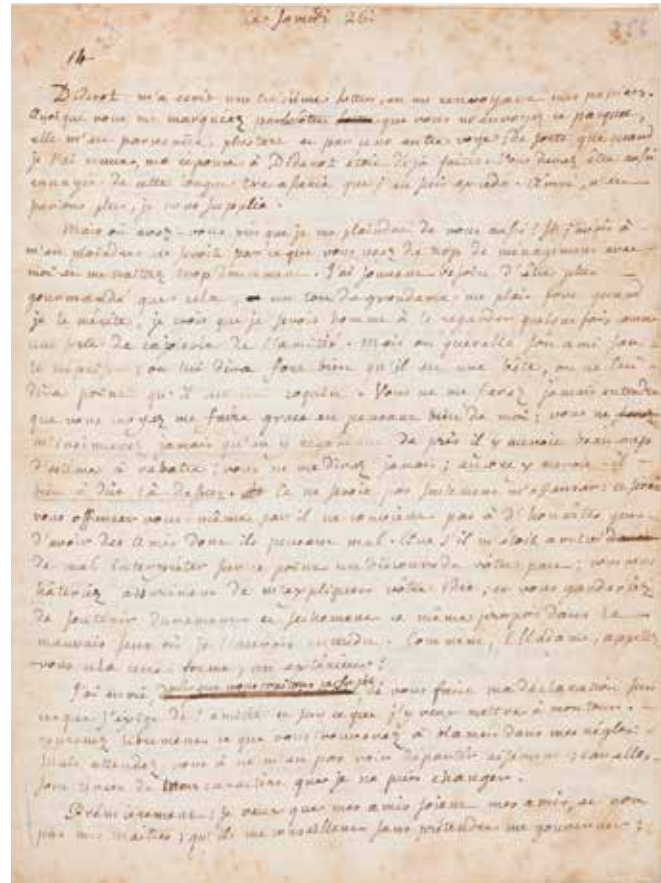 Ce samedi 26:
14
Diderot m'a ecrit une troisième lettre, en me renvoyant mes papiers.
Quoique vous me marquiez que vous m'envoyez ce paquet,
elle m'est parvenüe plustard et par une autre voye; de sorte que quand
je l'ai receue, ma réponse à Diderot étoit déjà faite. Vous devez être aussi
ennuyée de cette longue tracasserie que j'en suis excédé. Ainsi, n'en
parlons plus, je vous supplie.
Mais où avez-vous pris que je me plaindrai de vous aussi? Si j'avois à
m'en plaindre ce seroit parceque vous usez de trop de ménagement avec
moi et me traittez trop doucement. J'ai souvent besoin d'être plus
gourmandé que cela; un ton de gronderie me plait fort quand
je le mérite; je crois que je serois homme à le regarder quelquefois comme
une sorte de cajolerie de l'amitié. Mais on querelle son ami sans
le mépriser; on lui dira fort bien qu'il est une bête, on ne lui
dira point qu'il est un coquin. Vous ne me ferez jamais entendre
que vous croyez me faire grace en pensant bien de moi; vous ne
m'insinuerez jamais qu'en y regardant de près il y auroit beaucoup
d'estime à rabatre; vous ne me direz jamais; encore y auroit-il
bien à dire là dessus. Ce ne seroit pas seulement m'offenser: ce seroit
vous offenser vous-même; car il ne convient pas à d'honnêtes gens
d'avoir des amis dont ils pensent mal. Que s'il m'étoit arrivé
de mal interpréter sur ce point un discours de vôtre part; vous vous
hâteriez assurément de m'expliquer vôtre idée, et vous garderiez
de soutenir durement et séchement ce même propos dans le
mauvais sens où je l'aurois entendu. Comment, Madame, appellez
vous cela une forme; un extérieur?
J'ai envie, puisque nous traitons ce sujet de vous faire ma déclaration sur
ce que j'exige de l'amitié et sur ce que j'y veux mettre à mon tour.
reprenez librement ce que vous trouverez à blamer dans mes règles:
Mais attendez vous à ne m'en pas voir départir aisément; car elles
sont tirées de mon caractère que je ne puis changer.
Prémiérement; je veux que mes amis soient mes amis, et non
pas mes maitres; qu'ils me conseillent sans prétendre me gouverner;